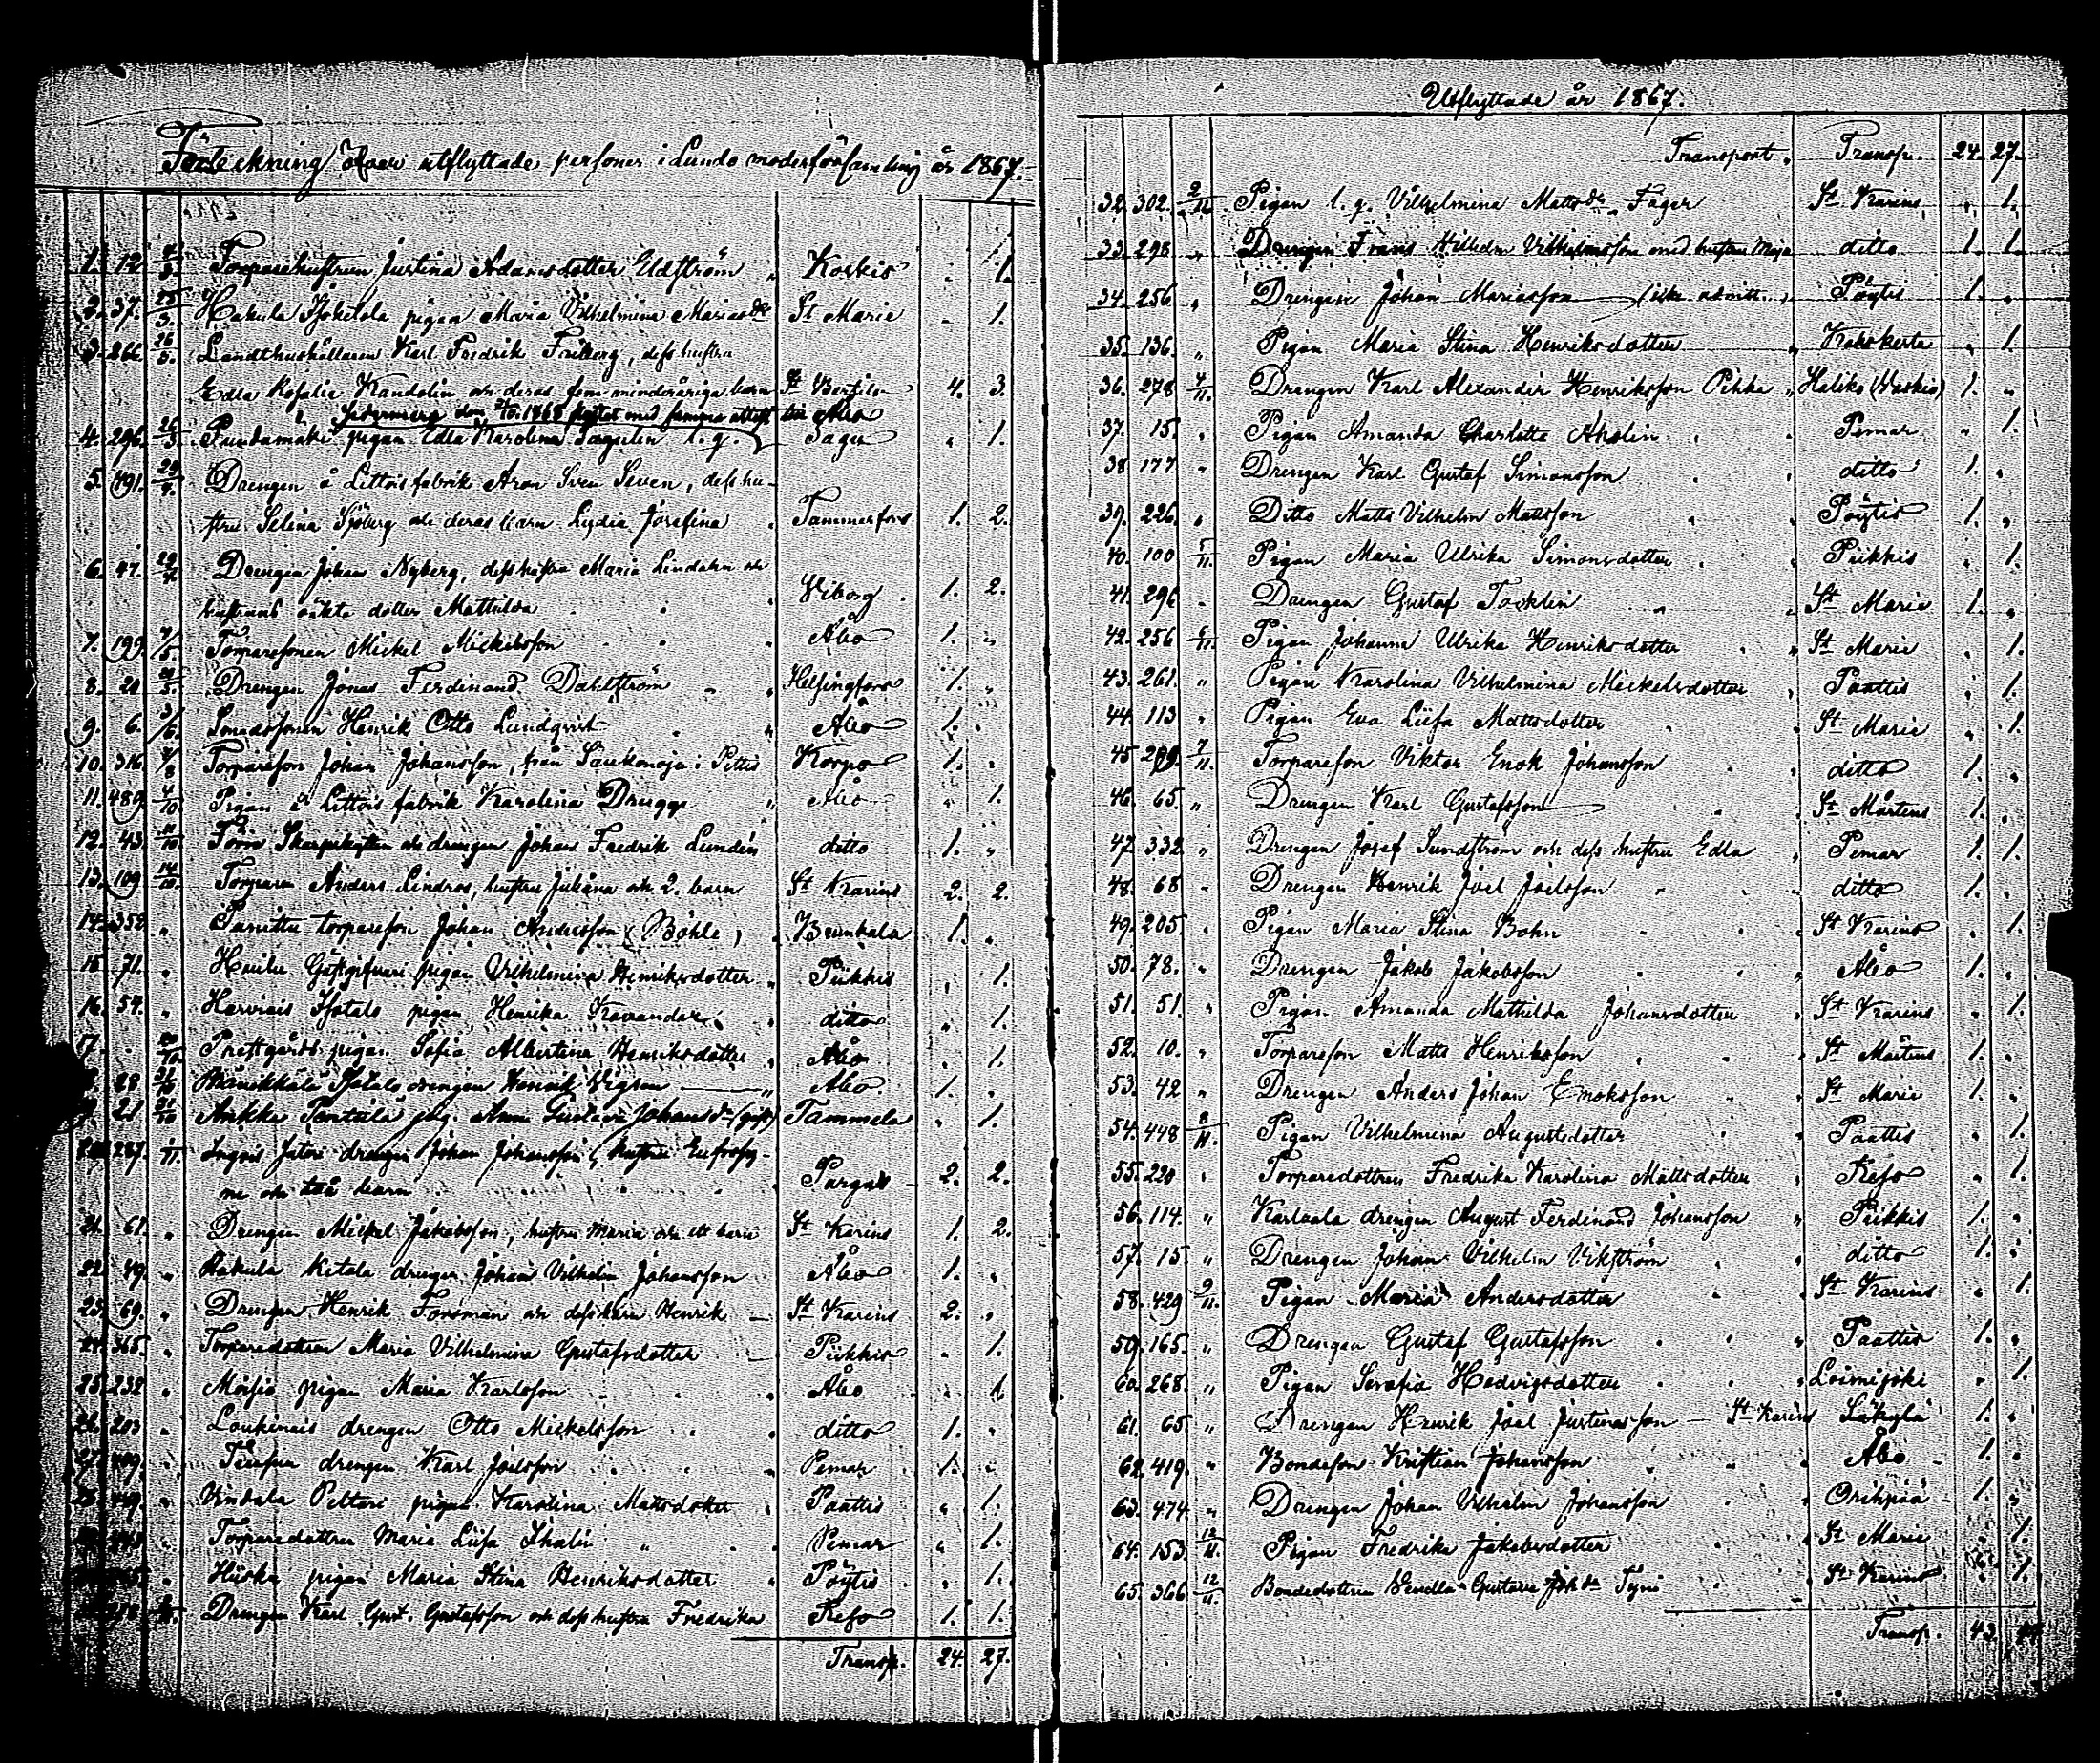 Förteckning öfver utflyttade personer i Lundo moderförsamling år 1867.
1. 12. Torparehustrun Justina Adamsdotter Edström Koskis 1.
2. 37. 25/3. Hakula Sjökilola pigan Maria Vilhelmina Mariasdr St Marie 1.
3. 266. 26/3. Landthushållaren Karl Fredrik Friberg, dess hustru
Edla Rosalie Kandolin och deras fem minderåriga barn St Bertils 4. 3.
den 1868 med samma attest till Åbo
4. 296. 26/3. pigan Edla Karolina Sagulin l. g. Sagu 1.
5. 491. 29/4. Drengen å Littois fabrik Aron Sven Seven, dess hu-
stru Selina Sjöberg och deras barn Lydia Josefina Tammerfors 1. 2.
6. 47. 29/4. Drengen Johan Nyberg, dess hustru Maria Lindahn och
hustruns oäkta dotter Mathilda Viborg 1. 2.
7. 199. 7/5. Torparesonen Mickel Mickelsson Åbo 1. "
8. 20 Drengen Jonas Ferdinand Dahlström Helsingfors 1. "
9. 6. 3/6. Smedssonen Henrik Otto Lundqvist Åbo 1. "
10. 316. 7/8 Torpareson Johan Johansson, från Saukonoja i Pettis Korpo 1. "
11. 489. 4/10 Pigan å Littois fabrik Karolina Drugge Åbo " 1.
12. 43. 11/10. Förre Skarpskytten och drengen Johan Fredrik Lundén ditto 1. "
13. 109 14/10. Torparen Anders Lindros, hustru Juliana och 2. barn St Karins 2. 2.
14. 352. " torpareson Johan Andersson (Böhle) Brunkala 1. "
15 71. " Gästgifveri pigan Vilhelmina Henriksdotter Piikkis " 1.
16. 54. " Harvais Isotalo pigan Henrika Kavander ditto " 1.
17. Prestgårds pigan Sofia Albertina Henriksdotter Åbo " 1.
28 Isotalo drengen Henrik Vigren Åbo. 1. "
21 31/10 Ankka Pantila pig. Anna Gustava Johansdr (gift) Tammela " 1.
287. 1/11. drengen Johan Johansson, hustru Eufrosy-
ne och två barn Pargas 2. 2.
21. 61. " Drengen Mickel Jakobsson, hustru Maria och ett barn St Karins 1. 2.
22. 49. " Kakula Ketola drengen Johan Vilhelm Johansson Åbo 1. "
23. 69. " Drengen Henrik Forsman och dess barn Henrik St Karins 2. "
24. 365. " Torparedottren Maria Vilhelmina Gustafsdotter Piikkis " 1.
25. 232 " Moisio pigan Maria Karlsson Åbo " 1.
26. 203 " Loukinais drengen Otto Mickelsson ditto 1. "
27. 409. " drengen Karl Joelsson Pemar 1. "
" Vindala Peltari pigan Karolina Mattsdotter Paattis " 1.
" Torparedottren Maria Liisa Pemar " 1.
" Hiiska pigan Maria Stina Henriksdotter Pöytis " 1.
Drengen Karl Gust. Gustafsson och dess hustru Fredrika Reso 1. 1.
Transp. 24. 27.
Utflyttade år 1867.
Transport, Transp. 24. 27.
32. 302. 2/11 Pigan l. g. Vilhelmina Mattsdr Fager St Karins " 1.
33. 298 " Drengen Frans Wilhelm Vilhelmsson med hustru Maja ditto 1. 1.
34. 256 " Drengen Johan Mariasson Pöytis 1. "
35. 136. " Pigan Maria Stina Henriksdotter Kakskerta " 1.
36. 278 4/11. Drengen Karl Alexander Henriksson Pikka Haliko (Vaskio) 1. "
37. 15. " Pigan Amanda Charlotta Aholin Pemar " 1.
38 177. " Drengen Karl Gustaf Simonsson ditto 1. "
39. 226. " Ditto Matts Vilhelm Mattsson Pöytis 1. "
40. 100 5/11. Pigan Maria Ulrika Simonsdotter Piikkis " 1.
41. 296 " Drengen Gustaf Tocklin St Marie 1. "
42. 256 6/11. Pigan Johanna Ulrika Henriksdotter St Marie " 1.
43. 261. " Pigan Karolina Vilhelmina Mickelsdotter Paattis " 1.
44. 113 " Pigan Eva Liisa Mattsdotter St Marie " 1.
45 299. 7/11. Torpareson Viktor Enok Johansson ditto 1. "
46. 65. " Drengen Karl Gustafsson St Mårtens 1. "
47. 332. " Drengen Josef Sundström och dess hustru Edla Pemar 1. 1.
48. 68 " Drengen Henrik Joel Joelsson ditto 1. "
49. 205. " Pigan Maria Stina Bohn St Karins " 1.
50. 78. " Drengen Jakob Jakobsson Åbo 1. "
51. 51. " Pigan Amanda Mathilda Johansdotter St Karins " 1.
52. 10. " Torpareson Matts Henriksson St Mårtens 1. "
53. 42 " Drengen Anders Johan Enoksson St Marie 1. "
54. 448 8/11. Pigan Vilhelmina Augustsdotter Paattis " 1.
55. 220 " Torparedottren Fredrika Karolina Mattsdotter Reso " 1.
56. 114. " Karlvala drengen August Ferdinand Johansson Piikkis 1. "
57. 15 " Drengen Johan Vilhelm Vikström ditto 1. "
58. 429 9/11. Pigan Maria Andersdotter St Karins " 1.
59. 165. " Drengen Gustaf Gustafsson Paattis 1. "
60. 268. " Pigan Serafia Hedvigsdotter Loimijoki " 1.
61. 65 " Drengen Henrik Joel Justinasson St Karins Säkylä 1. "
62. 419. " Bondeson Kristian Johansson Åbo 1. "
63. 474 " Drengen Johan Vilhelm Johansson Orihpää 1. "
64. 153. 12/11. Pigan Fredrika Jakobsdotter St Marie " 1.
65. 366 12/11. Bondedottren Vendla Gustava Johdr Tyni St Karins " 1.
Transp. 43.